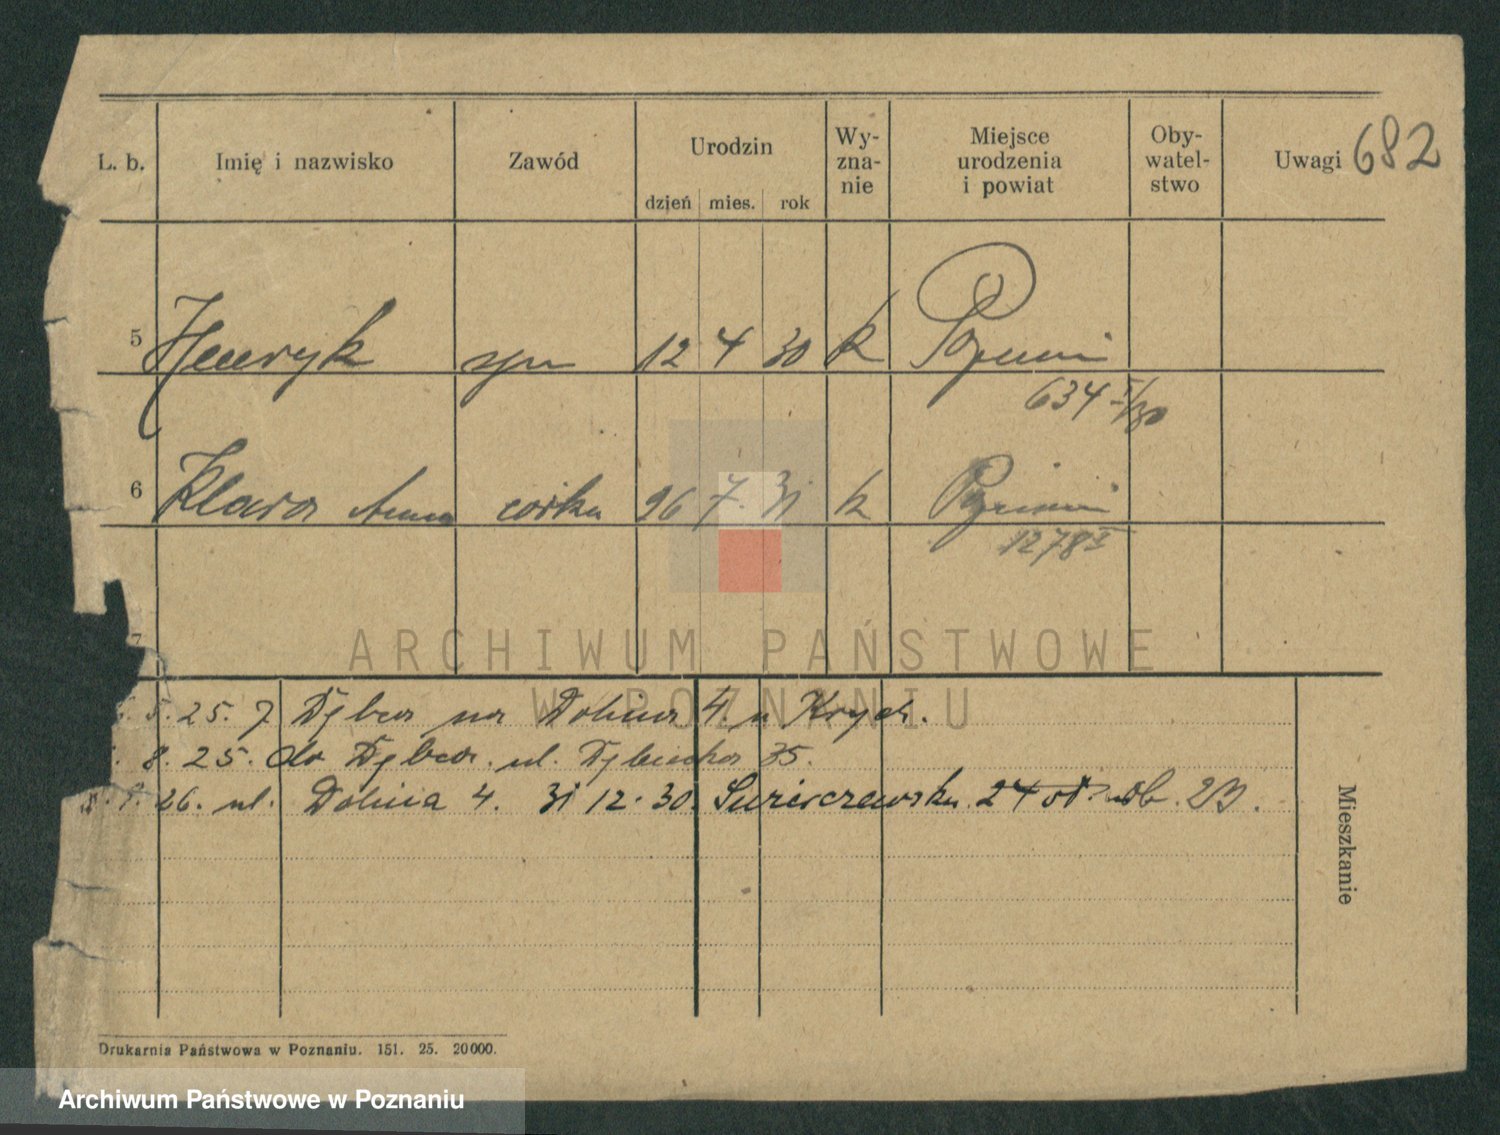 682
L. b. Imię i nazwisko Zawód Urodzin dzień mies. rok Wy- zna- nie Miejsce urodzenia i powiat Oby- watel- stwo Uwagi
5 Henryk syn 12 4 30 k Poznań
634 I/30
6 Klara Anna córka 26 7. 31 k Poznań
1278 I
7
5. 25. z Dębca na Dolina 4. u Krych.
8. 25. do Dębca. ul. Dębiecka 35.
26. ul. Dolina 4. 31 12. 30. 24 23.
Mieszkanie
Drukarnia Państwowa w Poznaniu. 151. 25. 20000.
ARCHIWUM PAŃSTWOWE
W POZNANIU
Archiwum Państwowe w Poznaniu